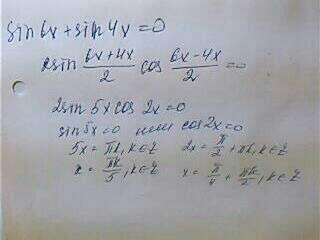 sin 6x + sin 4x = 0
2 sin (6x+4x)/2 cos (6x-4x)/2 = 0
2 sin 5x cos 2x = 0
sin 5x = 0 или cos 2x = 0
5x = πk, k∈Z 2x = π/2 + πk, k∈Z
x = πk/5, k∈Z x = π/4 + πk/2, k∈Z